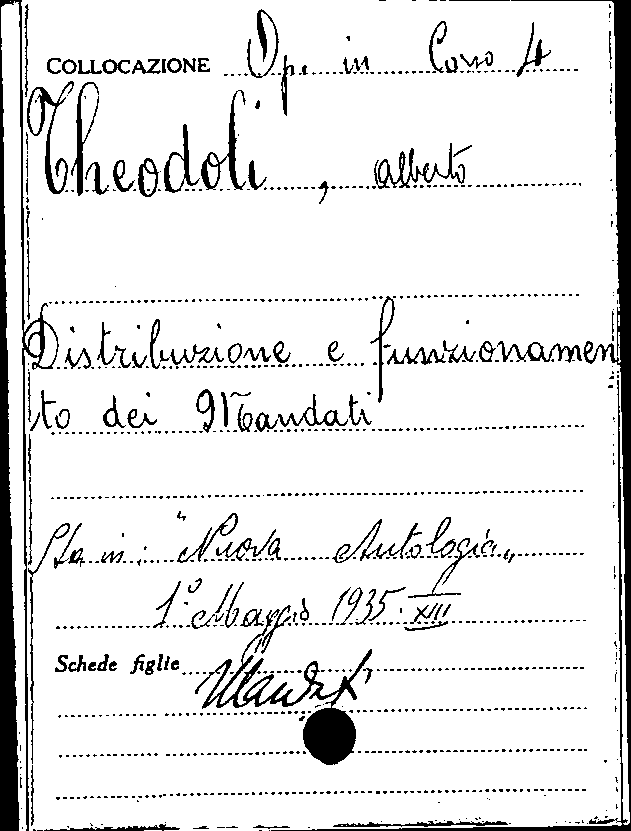 COLLOCAZIONE Op. in Corso 4
Theodoli, Alberto
Distribuzione e funzionamen
to dei Mandati
Sta in: "Nuova Antologia"
1° Maggio 1935. XIII
Schede figlie